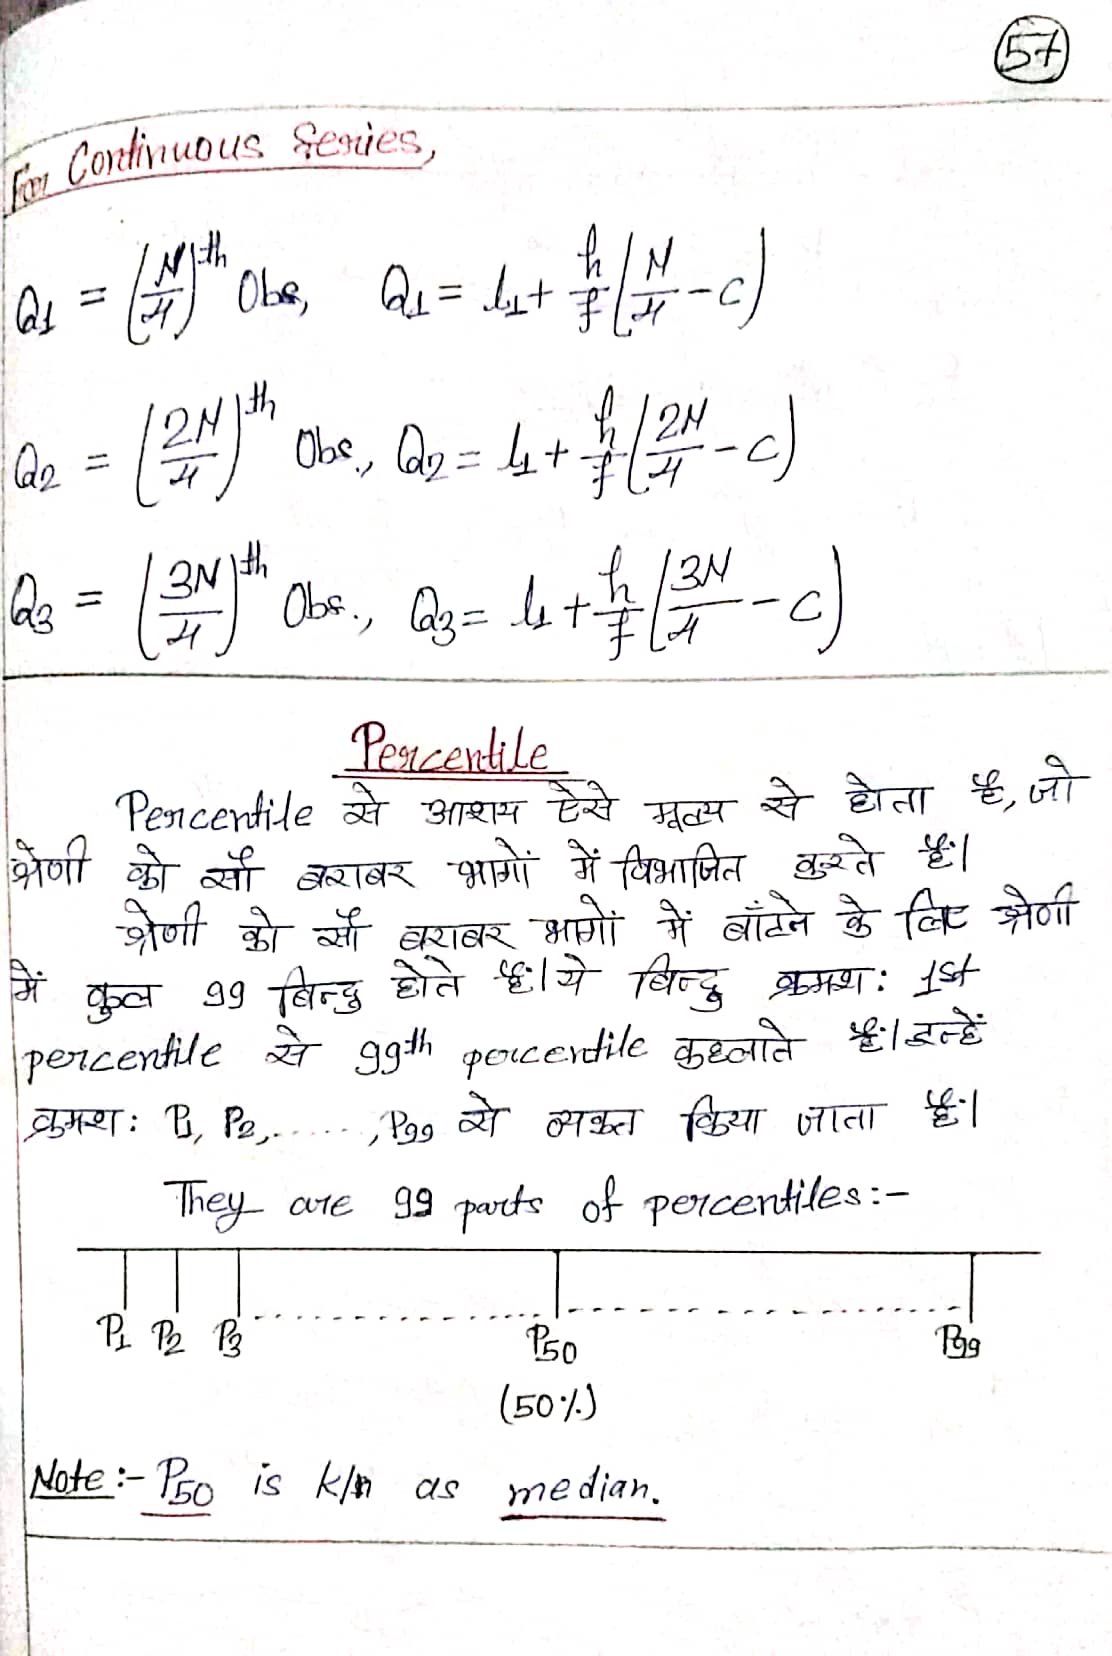 57
For Continuous Series,
Q1 = (N/4)th Obs, Q1 = l1 + h/f (N/4 - C)
Q2 = (2N/4)th Obs., Q2 = l1 + h/f (2N/4 - C)
Q3 = (3N/4)th Obs., Q3 = l1 + h/f (3N/4 - C)
Percentile
Percentile से आशय ऐसे मूल्य से होता है, जो
श्रेणी को सौ बराबर भागों में विभाजित करते हैं।
श्रेणी को सौ बराबर भागों में बाँटने के लिए श्रेणी
में कुल 99 बिन्दु होते हैं। ये बिन्दु क्रमश: 1st
percentile से 99th percentile कहलाते हैं। इन्हें
क्रमश: P1, P2,......, P99 से व्यक्त किया जाता है।
They are 99 parts of percentiles:-
P1 P2 P3 P50 P99
(50%)
Note:- P50 is k/n as median.